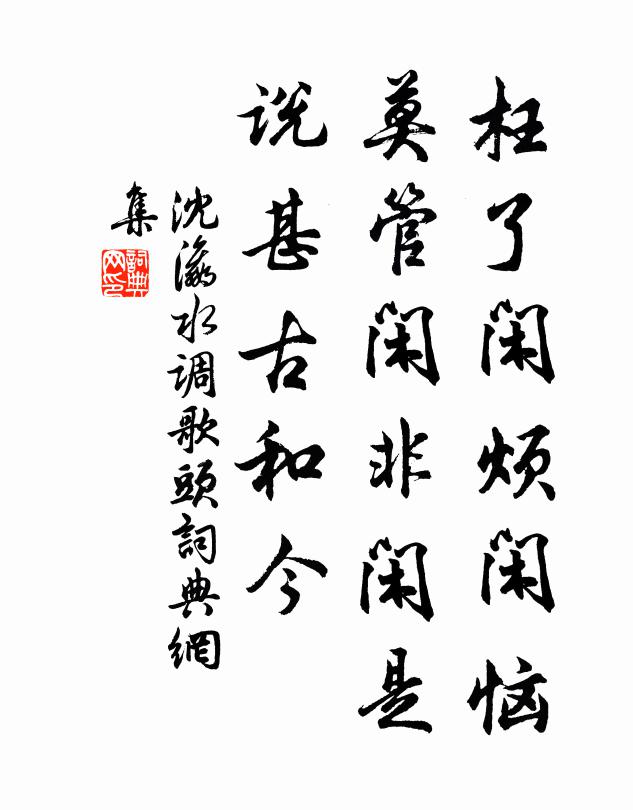 枉了闲烦闲恼
莫管闲非闲是
说甚古和今
沈瀛水调歌头詞典網
集
詞典
网印